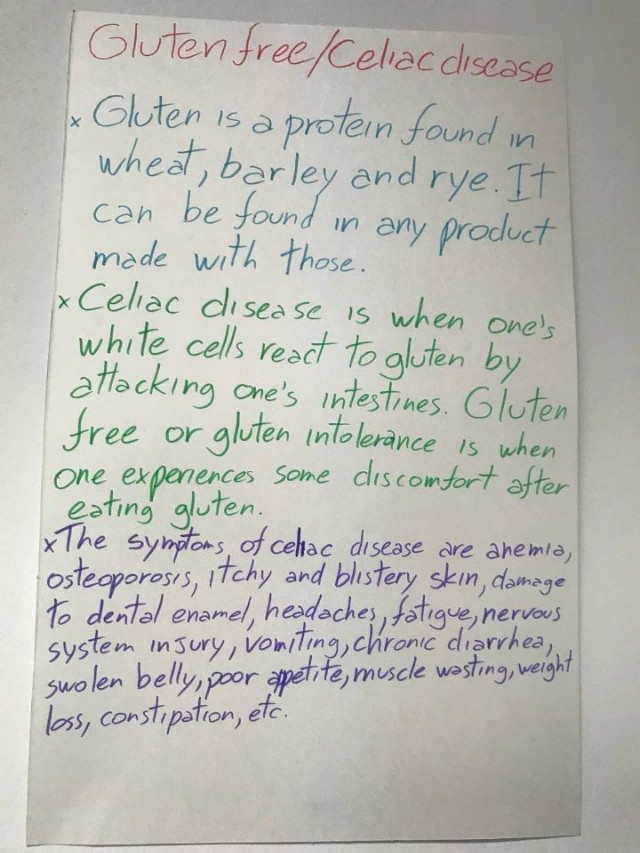 Gluten free/Celiac disease
x Gluten is a protein found in
wheat, barley and rye. It
can be found in any product
made with those.
x Celiac disease is when one's
white cells react to gluten by
attacking one's intestines. Gluten
free or gluten intolerance is when
one experiences some discomfort after
eating gluten.
x The symptoms of celiac disease are anemia,
osteoporosis, itchy and blistery skin, damage
to dental enamel, headaches, fatigue, nervous
system injury, vomiting, chronic diarrhea,
swolen belly, poor appetite, muscle wasting, weight
loss, constipation, etc.